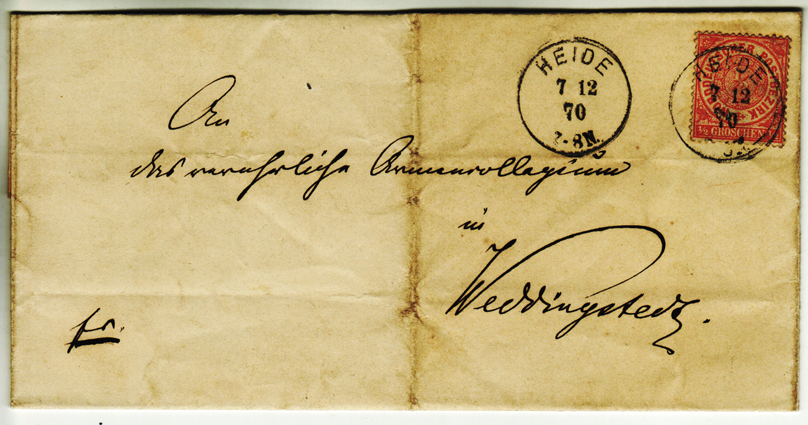 HEIDE
7 12
70
7-8N.
HEIDE
7 12
70
NORDDEUTSCHER POSTBEZIRK
½ GROSCHEN
An
das verehrliche Armencollegium
in
Weddingstedt.
fr.